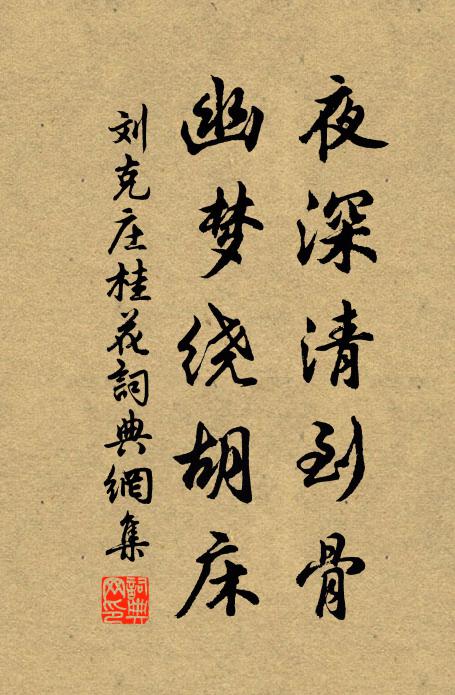 夜深清到骨
幽梦绕胡床
刘克庄桂花詞典網集
詞典网印